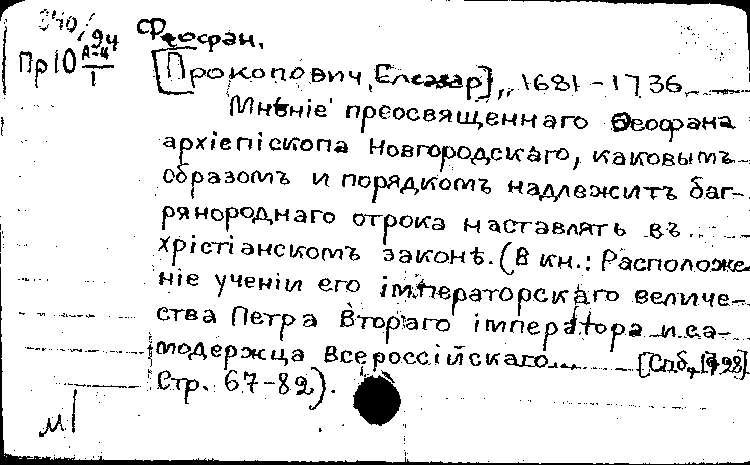 240/94
Феофан.
Пр10 А-4/1
[Прокопович, Елеазар], 1681-1736.
Мнѣніе преосвященнаго Ѳеофана
архіепіскопа Новгородскаго, каковымъ
образомъ и порядкомъ надлежитъ баг-
рянороднаго отрока наставлять въ
хрістіанскомъ законѣ. (В кн.: Расположе-
ніе ученіи его імператорскаго величе-
ства Петра Втораго імператора и са-
модержца Всероссійскаго... [Спб., 1728]
Стр. 67-82).
м1